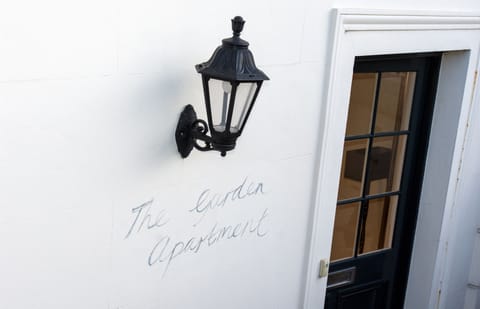 The Garden
Apartment